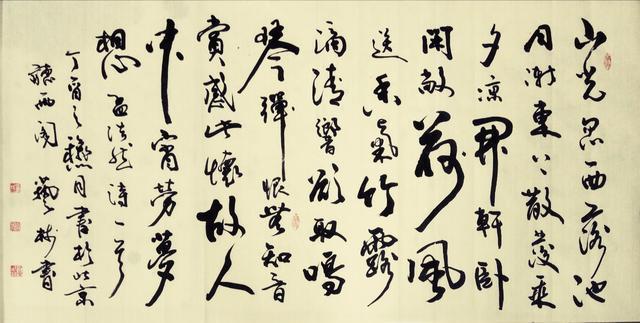 山光忽西落池
月漸東上散發乘
夕涼開軒卧
閑敞荷風
送香氣竹露
滴清響欲取鳴
琴彈恨無知音
賞感此懷故人
中宵勞夢
想孟浩然詩一首
丁酉之穐月書於北京
聽雨閣書